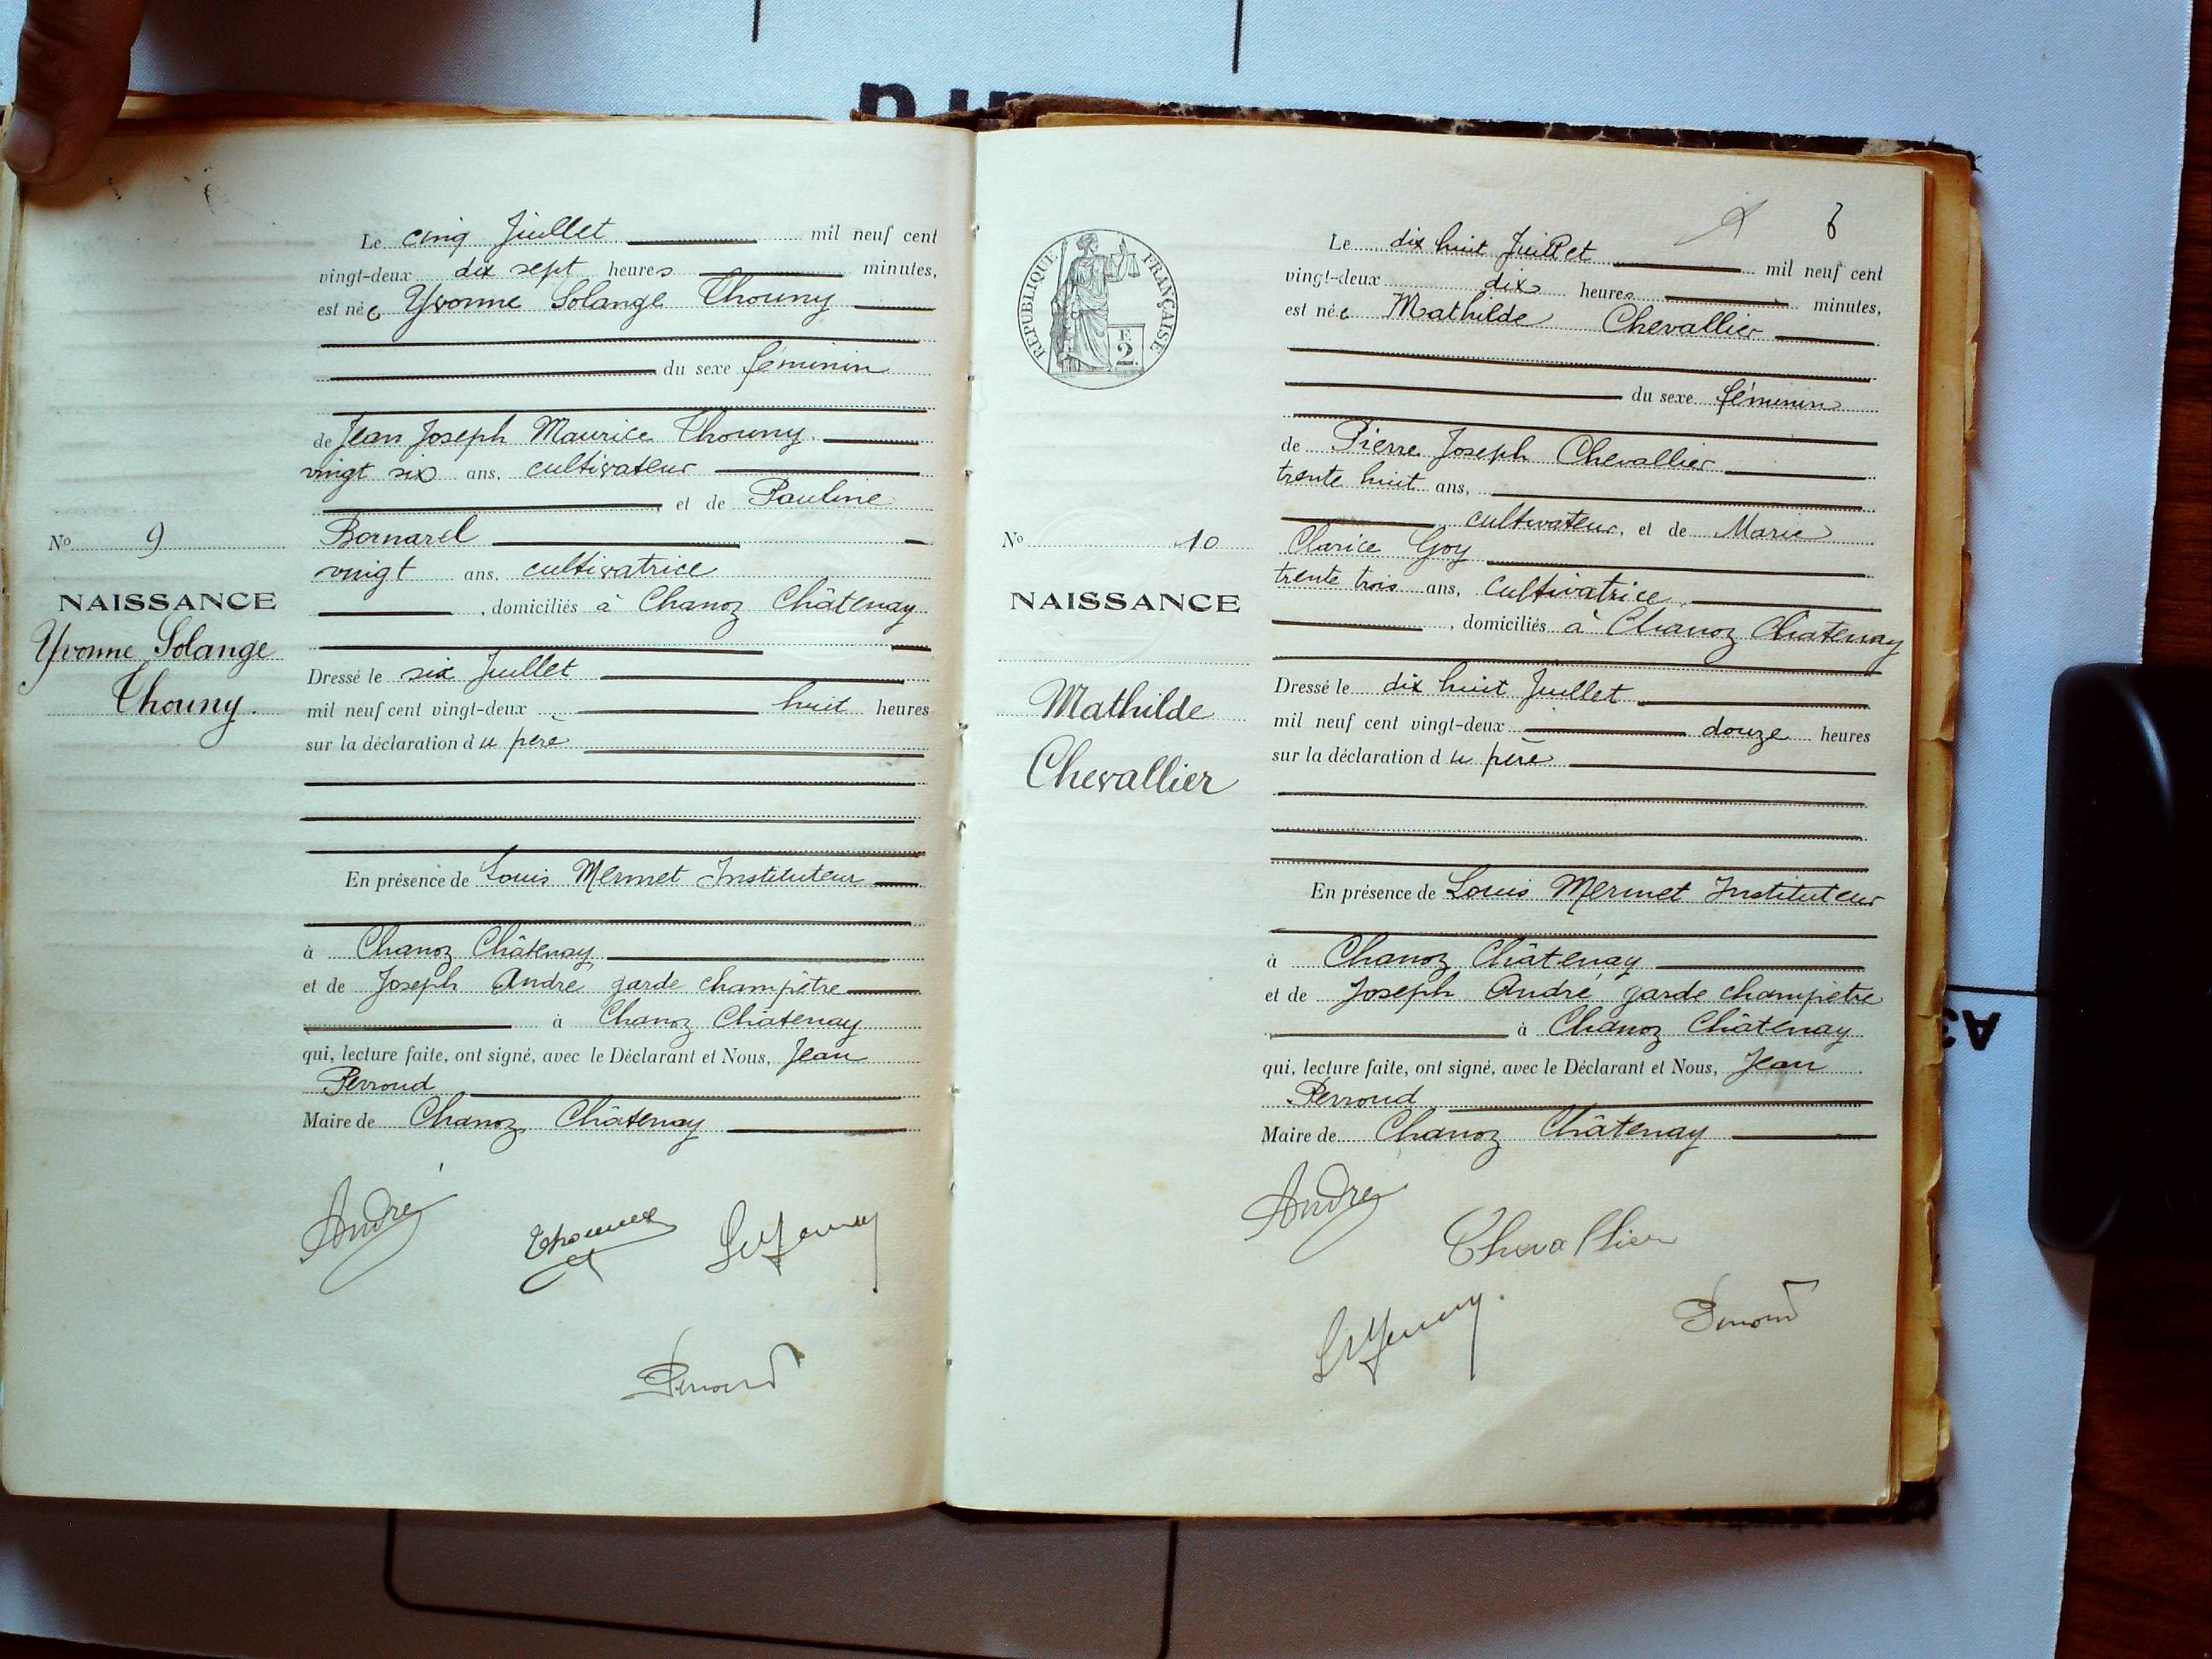 Le cinq Juillet mil neuf cent
vingt-deux dix sept heures minutes,
est née Yvonne Solange Thouny
du sexe féminin
de Jean Joseph Maurice Thouny
vingt six ans, cultivateur
et de Pauline
Bornarel
vingt ans, cultivatrice
, domiciliés à Chanoz Châtenay
No 9
NAISSANCE
Yvonne Solange
Thouny.
Dressé le six Juillet
mil neuf cent vingt-deux huit heures
sur la déclaration du père
En présence de Louis Mermet Instituteur
à Chanoz Châtenay
et de Joseph André garde champêtre
à Chanoz Châtenay
qui, lecture faite, ont signé, avec le Déclarant et Nous, Jean
Perroud
Maire de Chanoz Châtenay
André
Perroud
RÉPUBLIQUE FRANÇAISE
E
2
Le dix huit Juillet mil neuf cent
vingt-deux dix heures minutes,
est née Mathilde Chevallier
du sexe féminin
de Pierre Joseph Chevallier
trente huit ans,
cultivateur, et de Marie
Clarice Goy
trente trois ans, cultivatrice
, domiciliés à Chanoz Chatenay
No 10
NAISSANCE
Mathilde
Chevallier
Dressé le dix huit Juillet
mil neuf cent vingt-deux douze heures
sur la déclaration du père
En présence de Louis Mermet Instituteur
à Chanoz Châtenay
et de Joseph André garde champêtre
à Chanoz Châtenay
qui, lecture faite, ont signé, avec le Déclarant et Nous, Jean
Perroud
Maire de Chanoz Châtenay
André
Chevallier
Perroud
A3